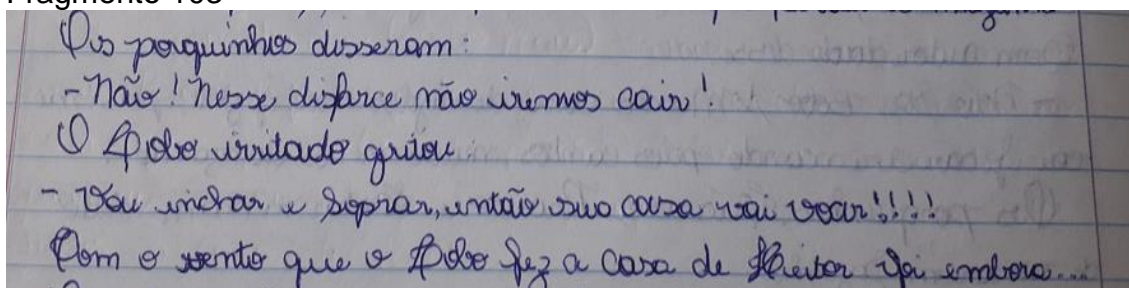 Os porquinhos disseram:
- Não! Nesse disfarce não iremos cair!
O Lobo irritado gritou
- Vou inchar e soprar, então sua casa vai voar!!!!
Com o vento que o Lobo fez a casa de Heitor foi embora...